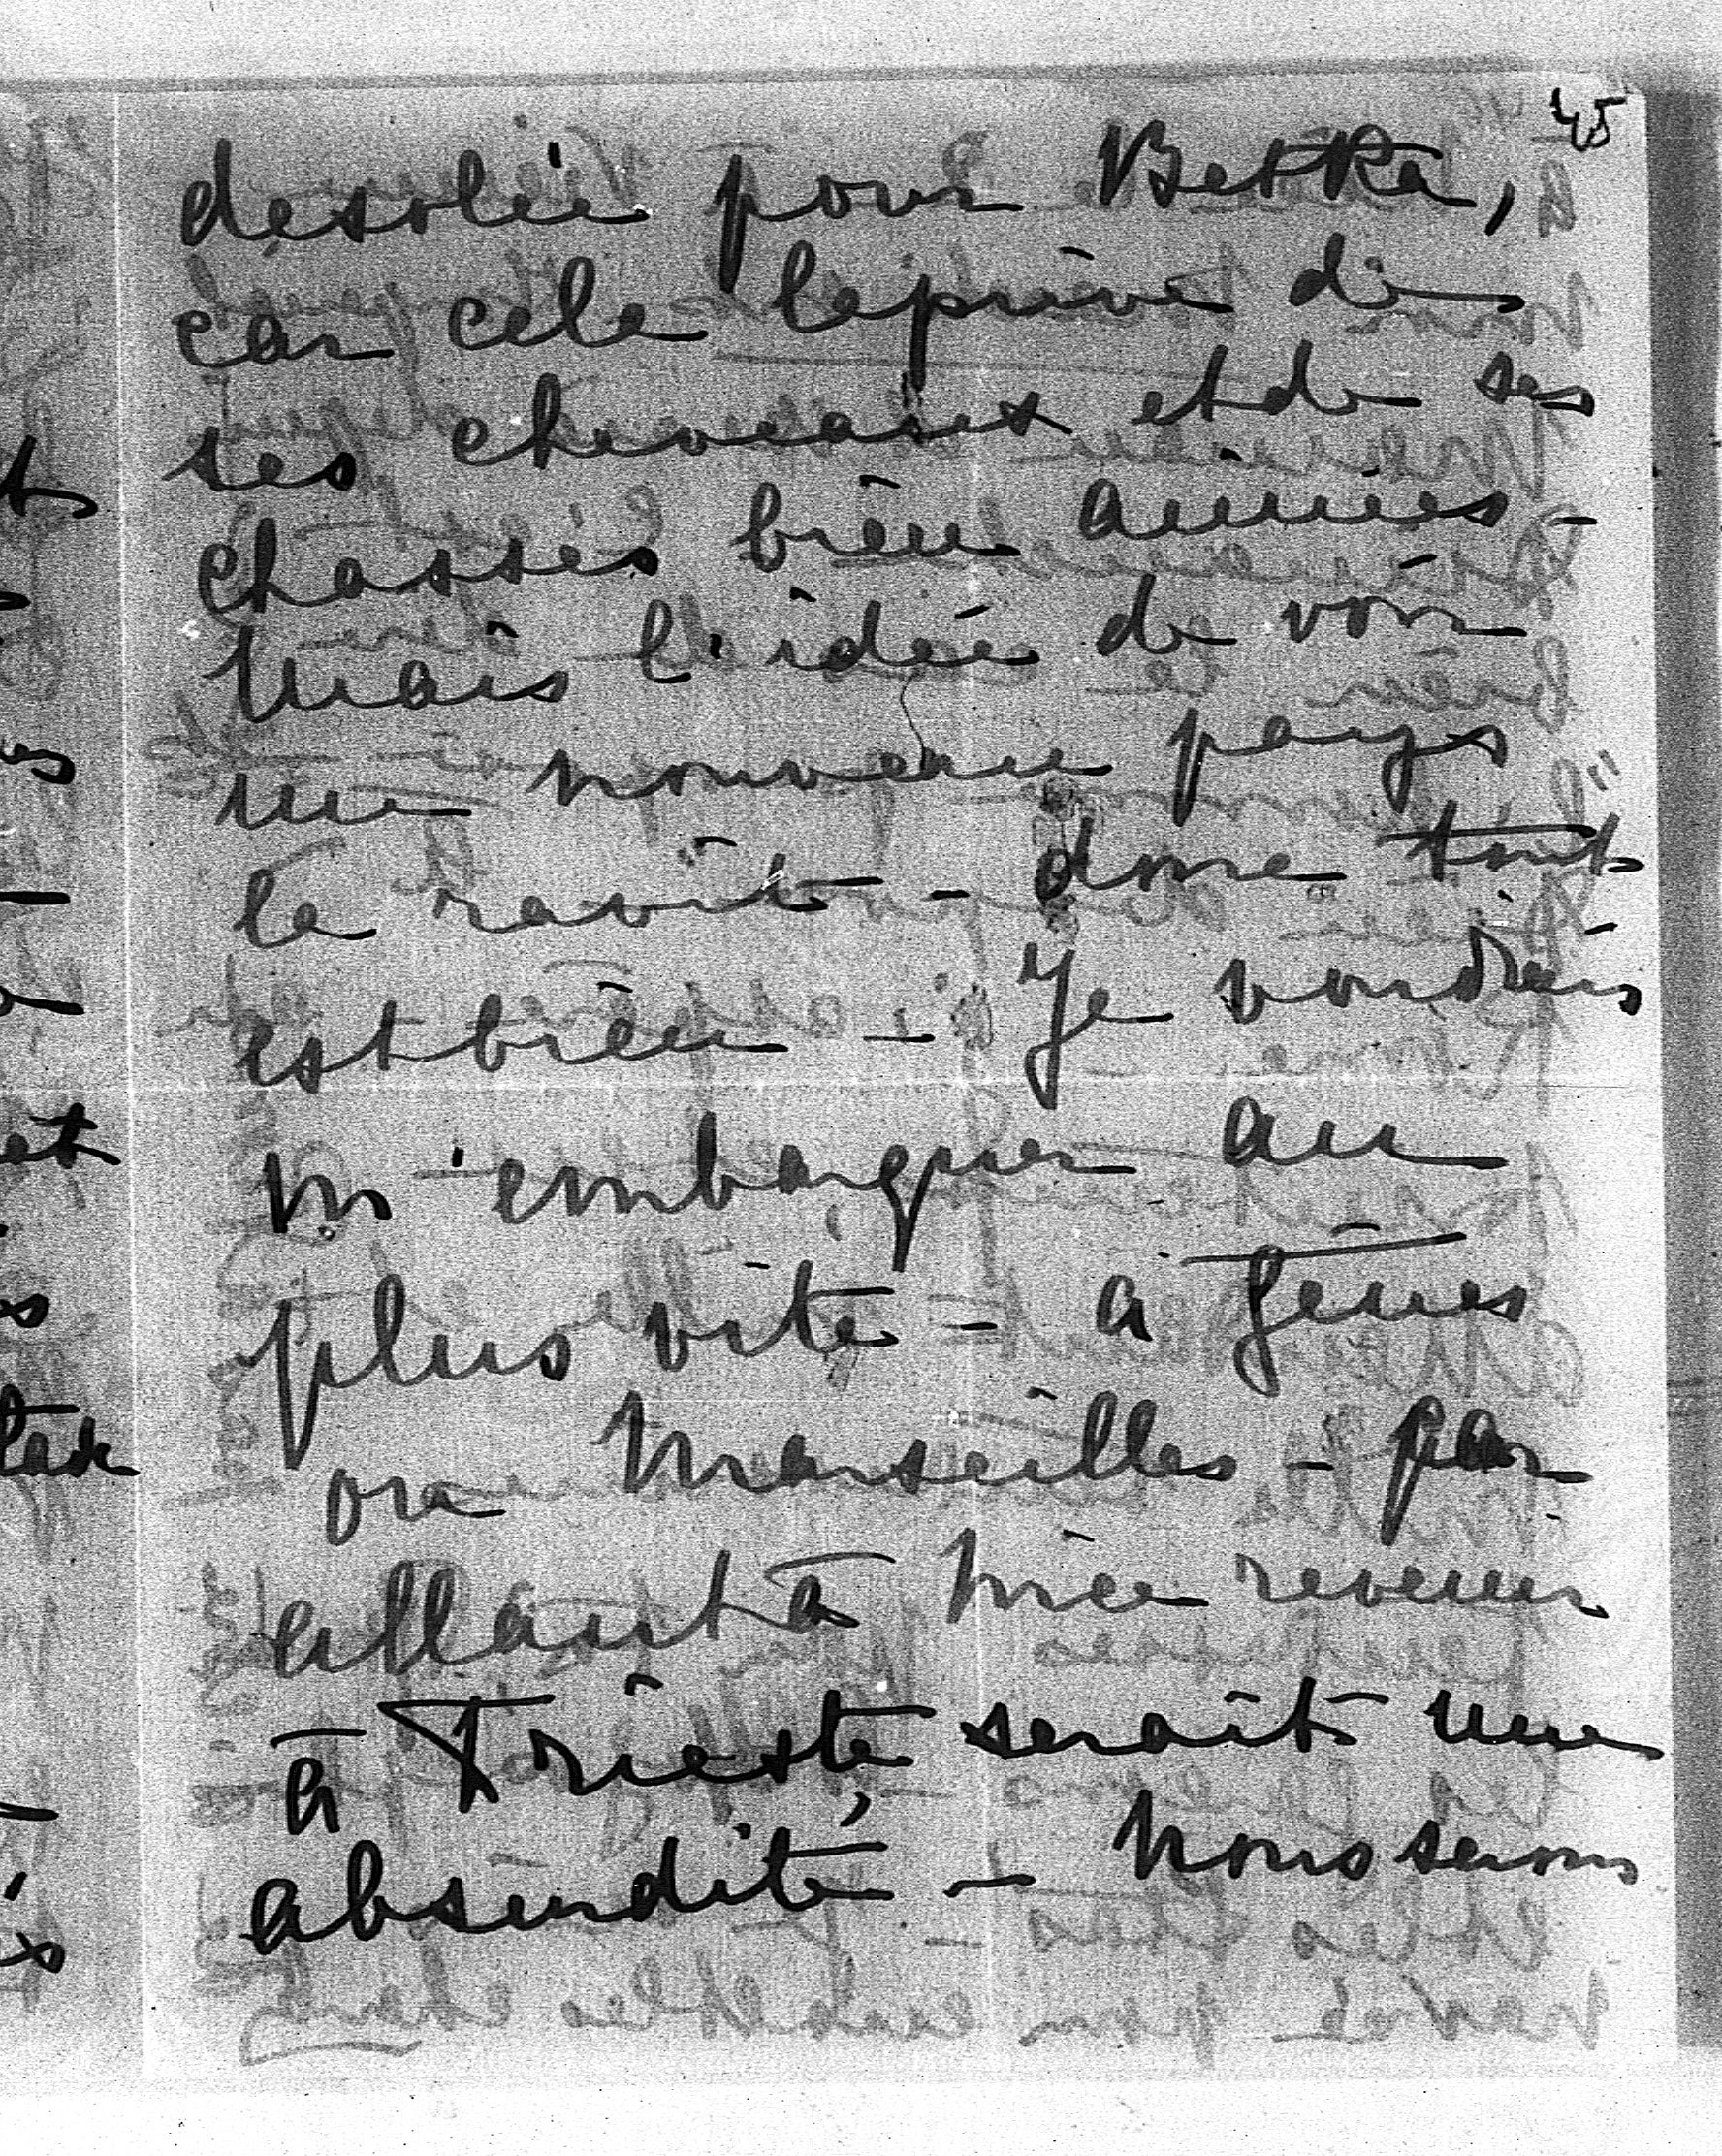 45
desolée pour Betka,
car cela le prive de
ses chevaux et de ses
chasses bien aimées -
Mais l'idée de voir
un nouveau pays
le ravit - donc tout
est bien - Je voudrais
m'embarquer au
plus vite - à Gênes
ou Marseilles - par
allant à Nice revenir
à Trieste, serait une
absurdité - Nous serons